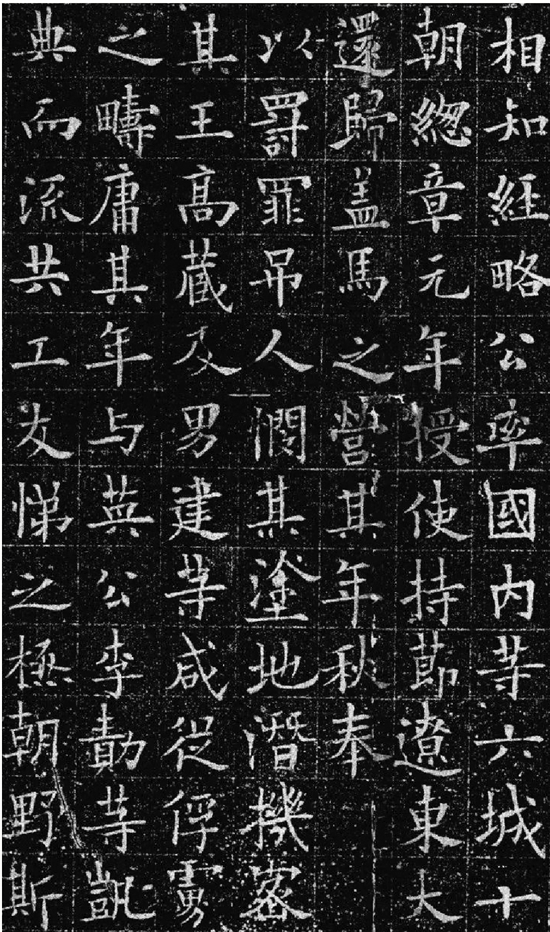 相知經略公率國内等六城十
朝總章元年授使持節遼東大
還歸盖馬之營其年秋奉
以罰罪吊人憫其塗地潛機密
其王高藏及男建等咸從俘虜
之疇庸其年与英公李勣等凱
典而流共工友悌之極朝野斯